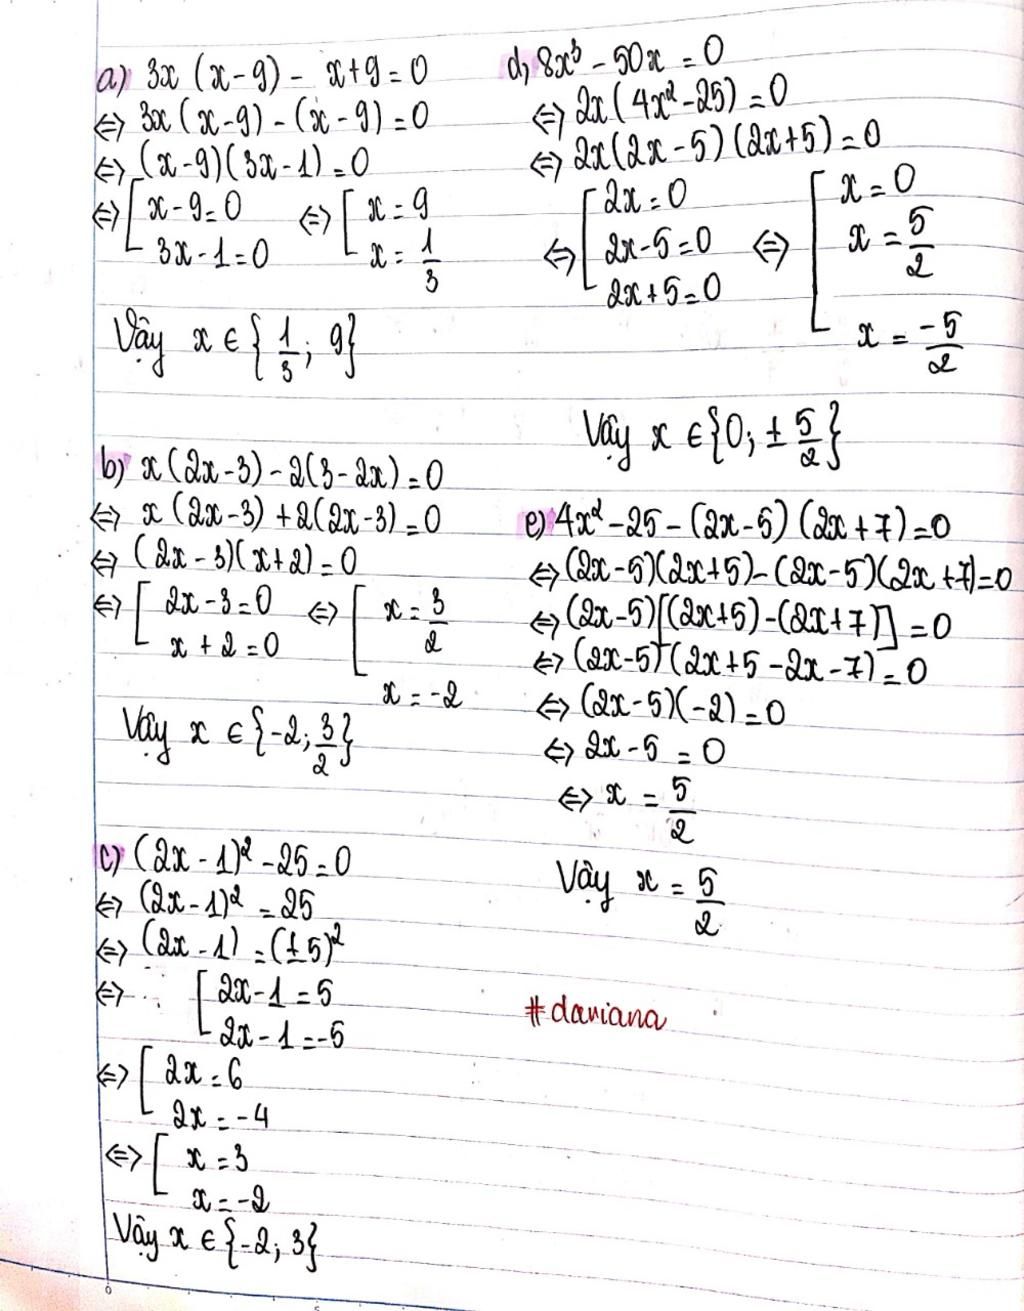 a) 3x (x-9) - x+9=0
⇔ 3x(x-9) - (x-9)=0
⇔ (x-9)(3x-1)=0
⇔ [ x-9=0 ⇔ [ x=9
3x-1=0 x= 1/3
Vậy x ∈ { 1/3 ; 9}
b) x(2x-3)-2(3-2x)=0
⇔ x(2x-3)+2(2x-3)=0
⇔ (2x-3)(x+2)=0
⇔ [ 2x-3=0 ⇔ [ x= 3/2
x+2=0
x=-2
Vậy x ∈ {-2; 3/2}
c) (2x-1)²-25=0
⇔ (2x-1)² =25
⇔ (2x-1) =(±5)²
⇔ [ 2x-1=5
2x-1=-5
⇔ [ 2x=6
2x=-4
⇔ [ x=3
x=-2
Vậy x ∈ {-2; 3}
d, 8x³-50x=0
⇔ 2x(4x²-25)=0
⇔ 2x(2x-5)(2x+5)=0
⇔ [ 2x=0 ⇔ [ x=0
2x-5=0 x= 5/2
2x+5=0
x= -5/2
Vậy x ∈ {0; ± 5/2}
e) 4x²-25-(2x-5)(2x+7)=0
⇔ (2x-5)(2x+5)-(2x-5)(2x+7)=0
⇔ (2x-5)[(2x+5)-(2x+7)]=0
⇔ (2x-5)(2x+5-2x-7)=0
⇔ (2x-5)(-2)=0
⇔ 2x-5=0
⇔ x= 5/2
Vậy x= 5/2
#dariana
0
5